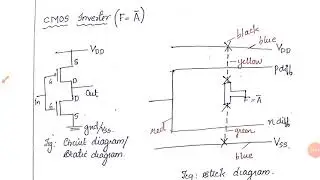 CMOS Inverter (F = Ā)
VDD
S
G
D
In
Out
D
G
S
gnd/VSS
Fig: Circuit diagram/
Static diagram
black
blue
VDD
yellow
p diff
F = Ā
Red
n diff
green
VSS
blue
Fig: Stick diagram.